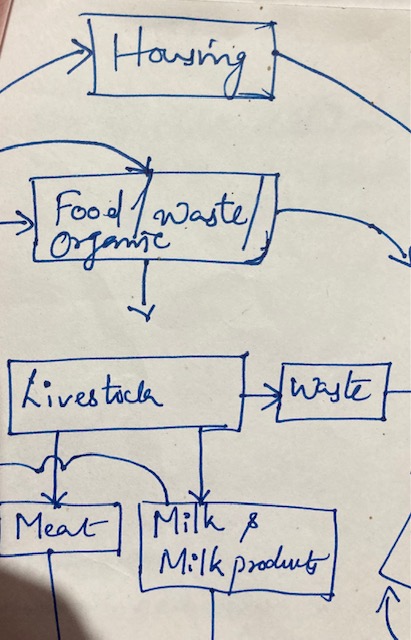 Housing
Food / Waste /
Organic
Livestock
Waste
Meat
Milk &
Milk products